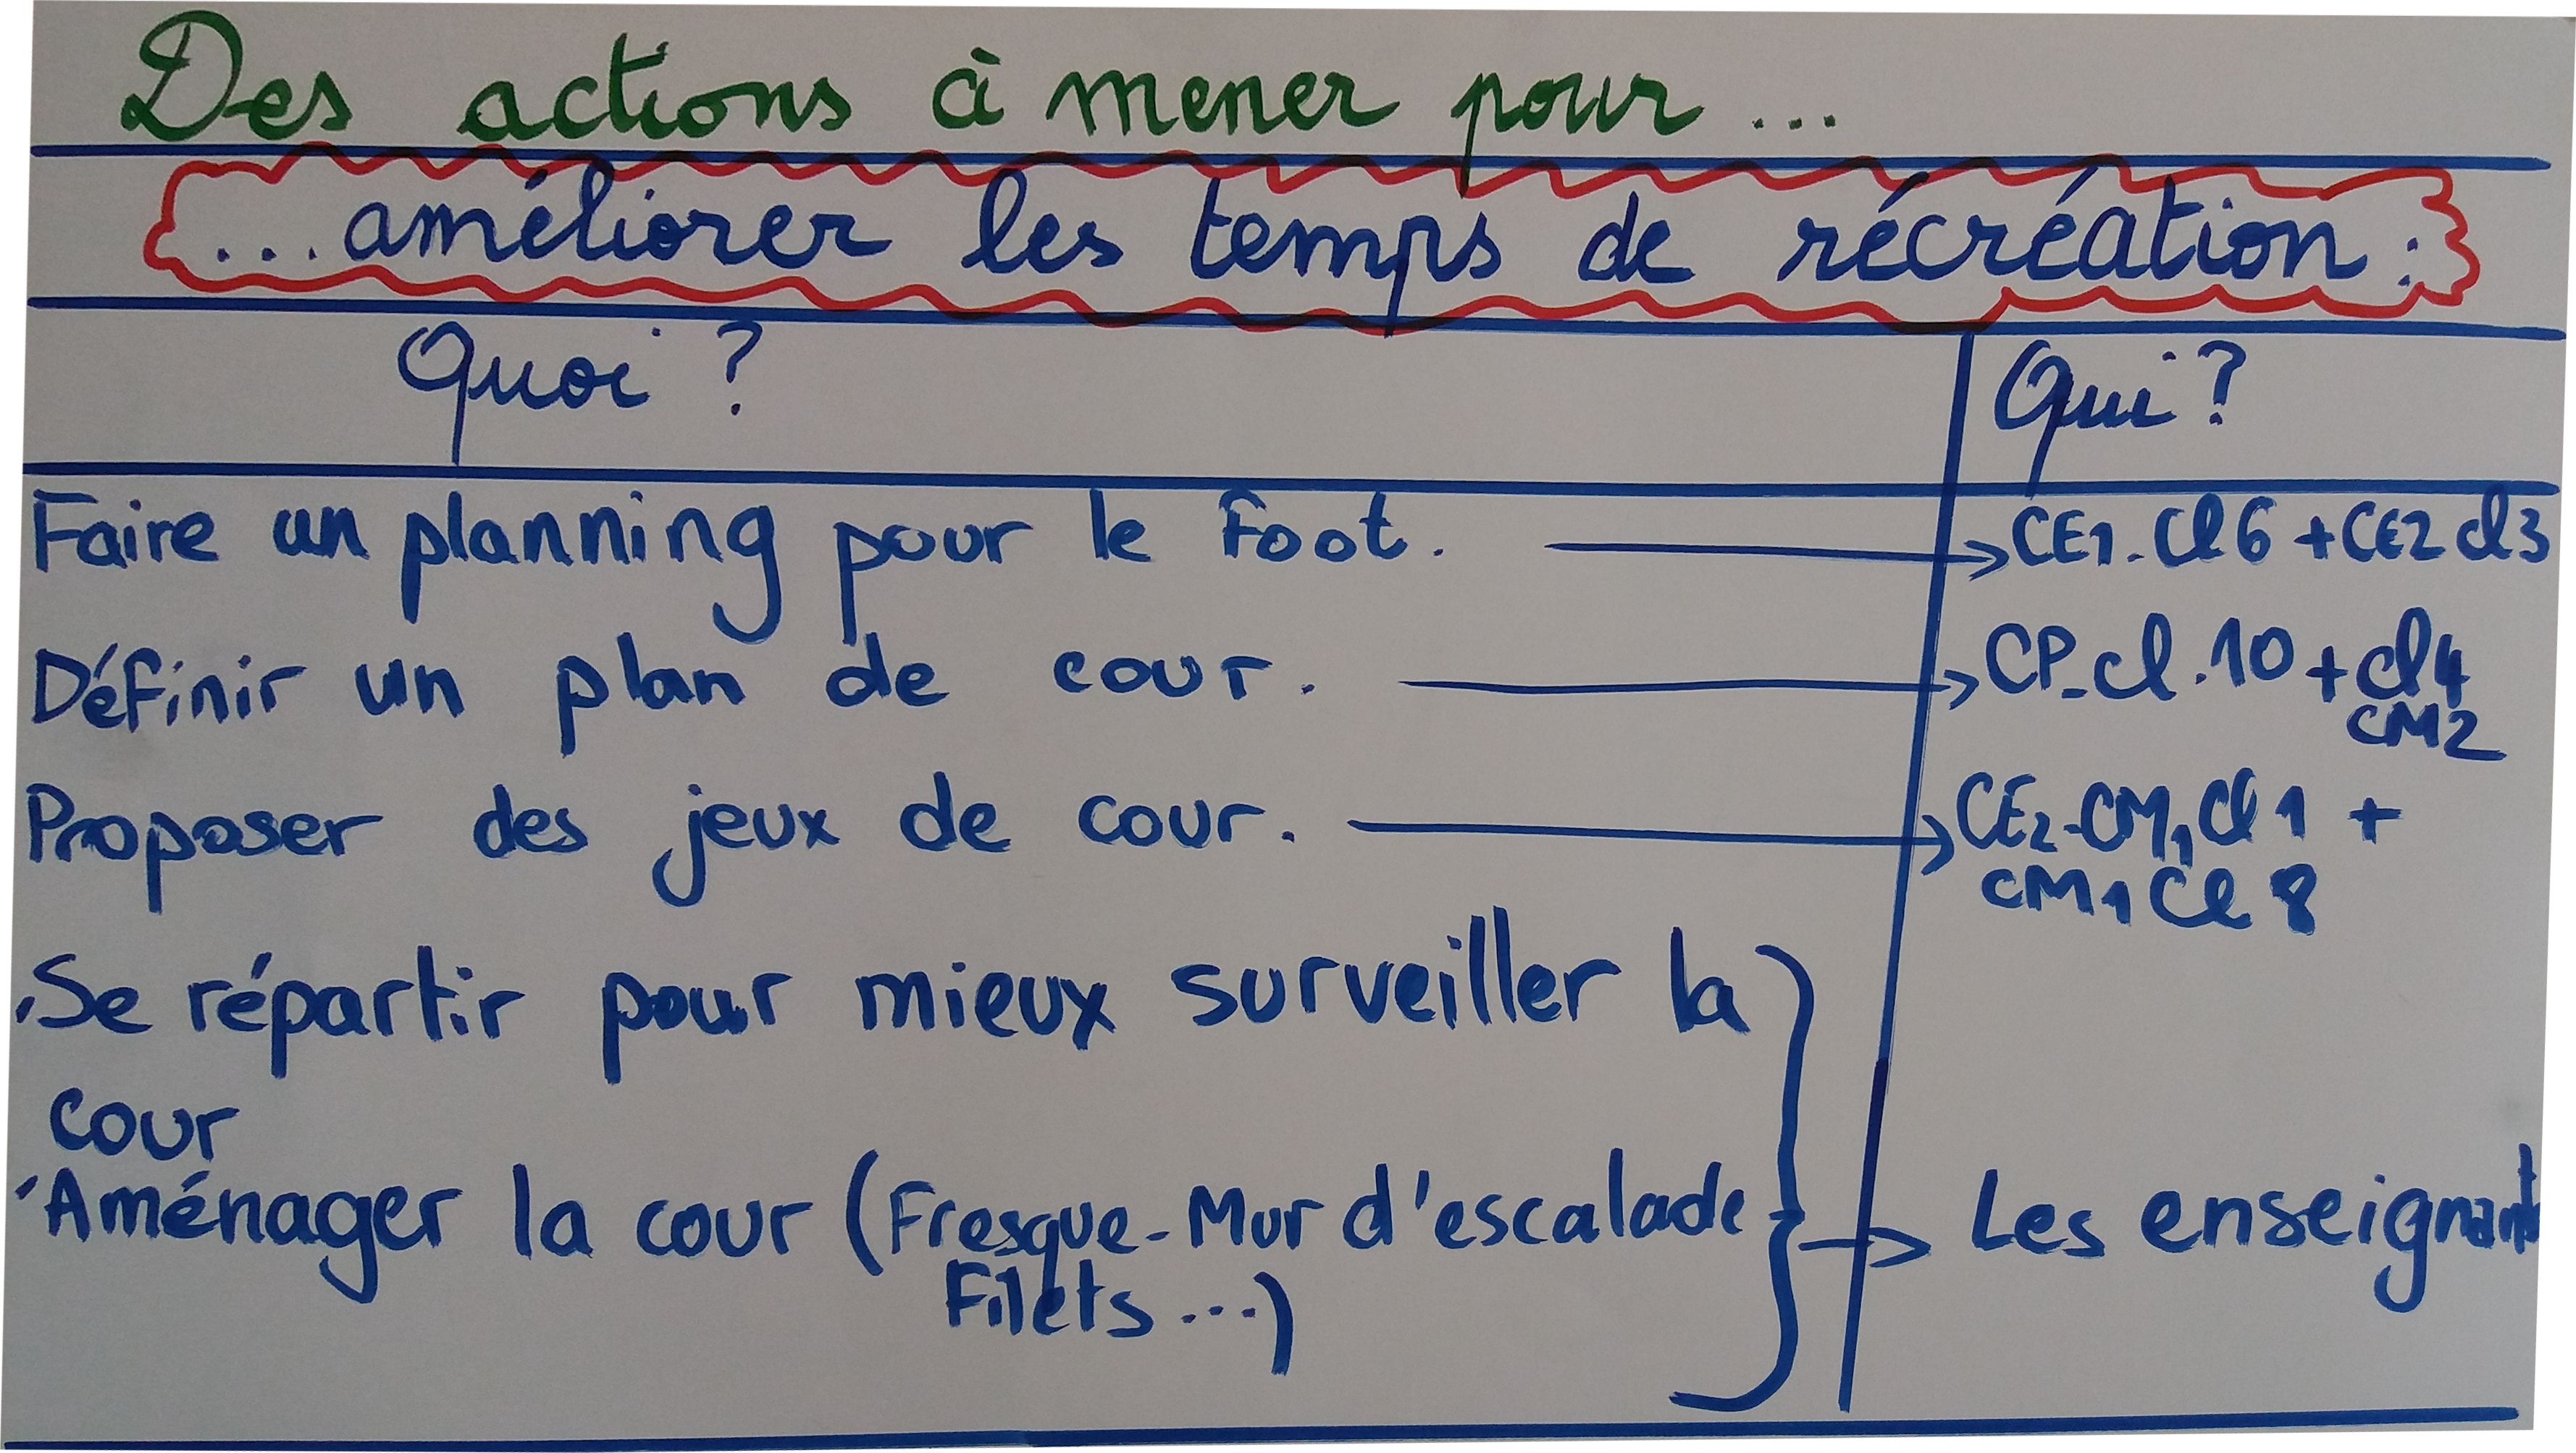 Des actions à mener pour ...
... améliorer les temps de récréation :
Quoi ? Qui ?
Faire un planning pour le foot. → CE1. Cl 6 + CE2 cl 3
Définir un plan de cour. → CP-cl.10 + cl 4
CM2
Proposer des jeux de cour. → CE2-CM1 Cl 1 +
CM1 Cl 8
. Se répartir pour mieux surveiller la
cour
. Aménager la cour (Fresque-Mur d'escalade → Les enseignants
Filets ...)